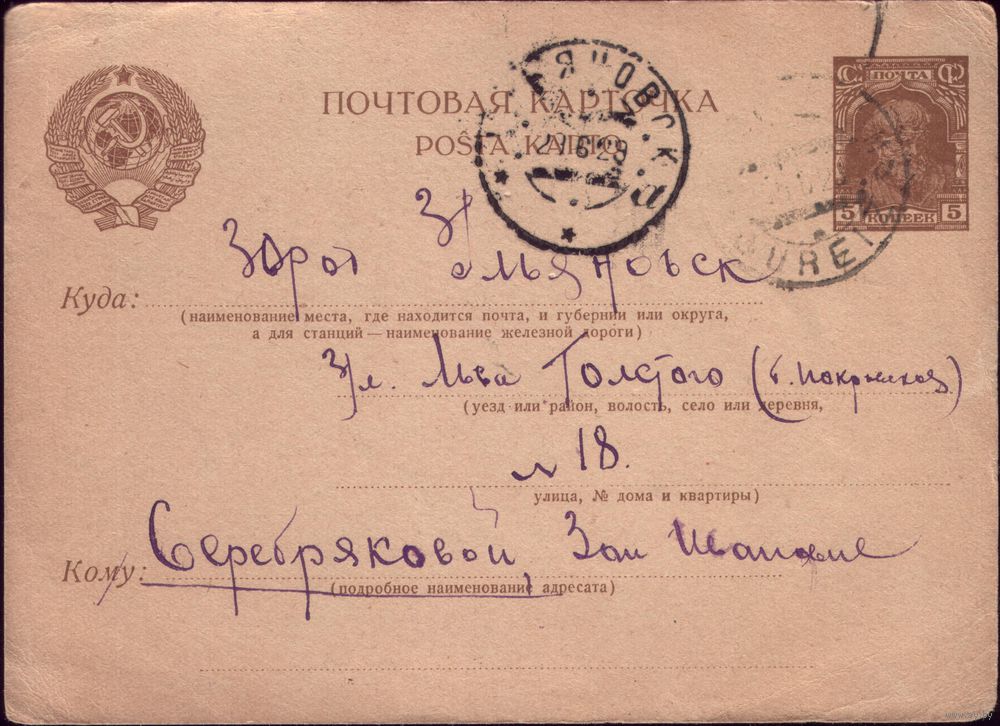 ПОЧТА
5 КОПЕЕК 5
ПОЧТОВАЯ КАРТОЧКА
POŜTA KARTO
27.6.28
BUREI
Куда: Ульяновск
(наименование места, где находится почта, и губернии или округа,
а для станций — наименование железной дороги)
Ул. Льва Толстого (б. Покровская)
(уезд или район, волость, село или деревня,
№ 18.
улица, № дома и квартиры)
Кому: Серебряковой, Ивановне
(подробное наименование адресата)